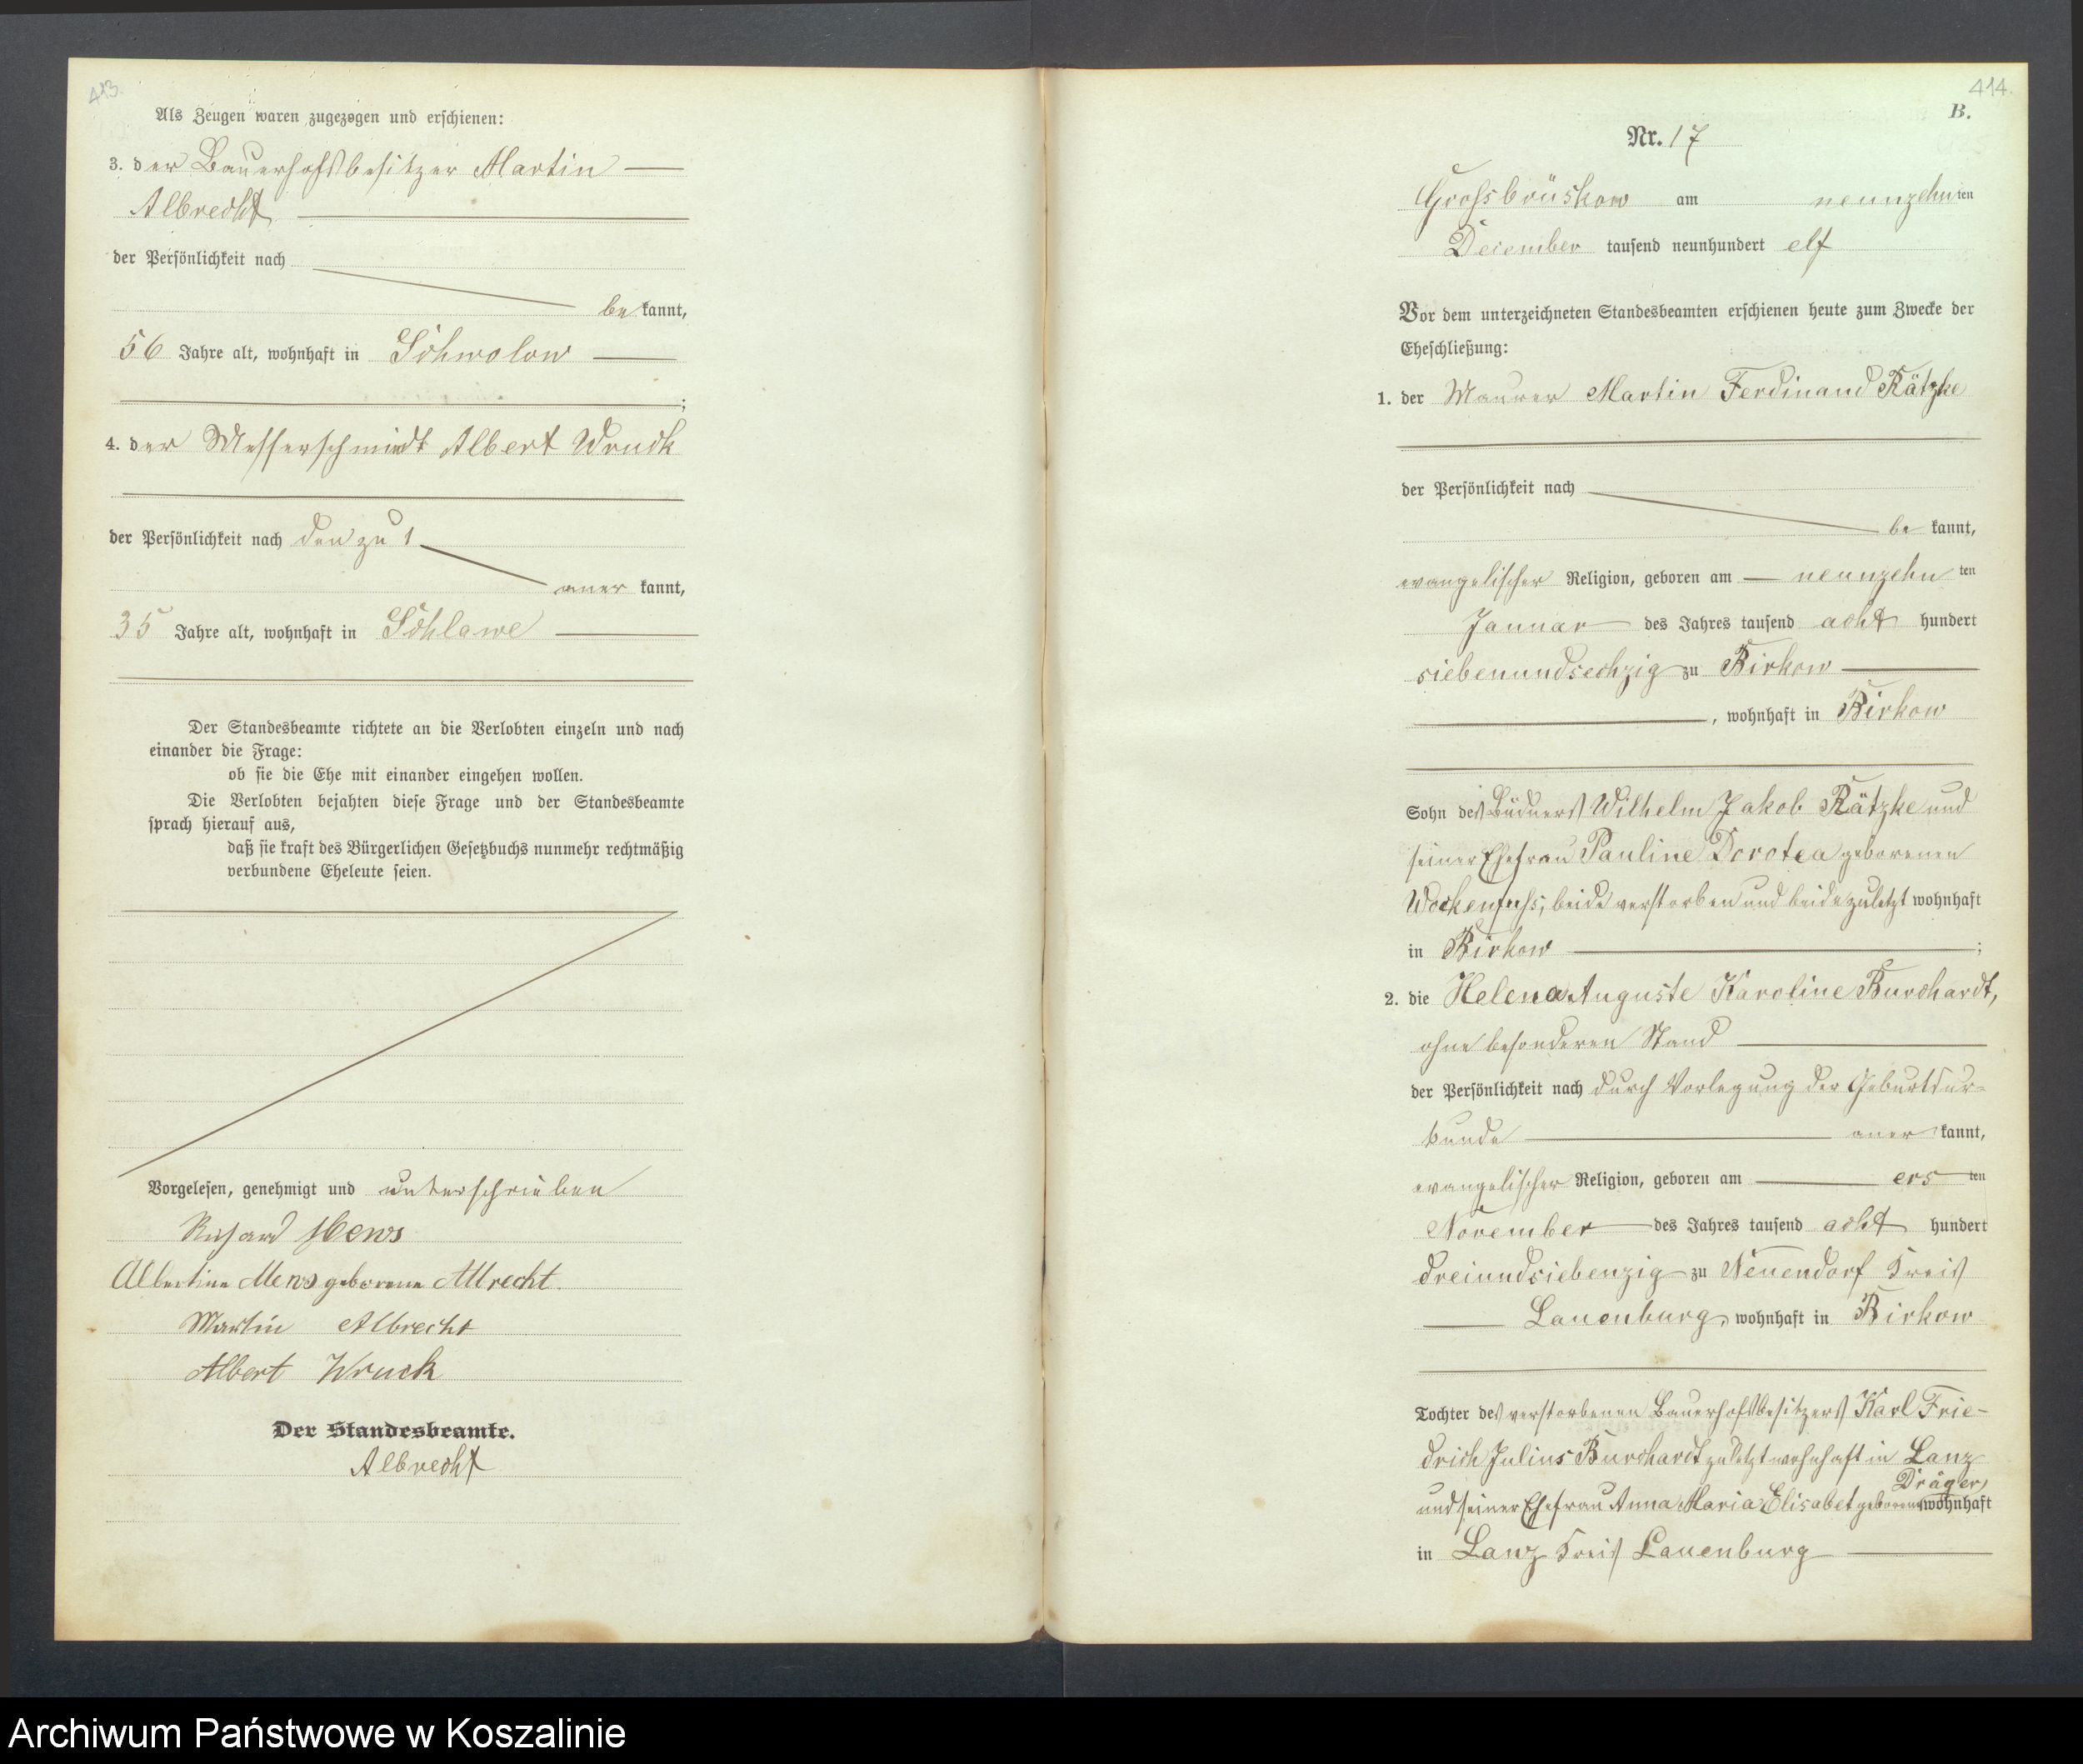 413.
Als Zeugen waren zugezogen und erschienen:
3. der Bauerhofsbesitzer Martin
Albrecht
der Persönlichkeit nach
be kannt,
56 Jahre alt, wohnhaft in Schwolow
;
4. der Messerschmiedt Albert Wruck
der Persönlichkeit nach den zu 1
aner kannt,
35 Jahre alt, wohnhaft in Schlawe
Der Standesbeamte richtete an die Verlobten einzeln und nach
einander die Frage:
ob sie die Ehe mit einander eingehen wollen.
Die Verlobten bejahten diese Frage und der Standesbeamte
sprach hierauf aus,
daß sie kraft des Bürgerlichen Gesetzbuchs nunmehr rechtmäßig
verbundene Eheleute seien.
Vorgelesen, genehmigt und unterschrieben
Richard Mews
Albertine Mews geborene Albrecht.
Martin Albrecht
Albert Wruck
Der Standesbeamte.
Albrecht
414.
B.
Nr. 17
Grossbrüskow am neunzehnten
December tausend neunhundert elf
Vor dem unterzeichneten Standesbeamten erschienen heute zum Zwecke der
Eheschließung:
1. der Maurer Martin Ferdinand Rätzke
der Persönlichkeit nach
be kannt,
evangelischer Religion, geboren am neunzehn ten
Januar des Jahres tausend acht hundert
siebenundsechzig zu Birkow
, wohnhaft in Birkow
Sohn des Büdners Wilhelm Jakob Rätzke und
seiner Ehefrau Pauline Dorotea geborenen
Wockenfuss, beide verstorben und beide zuletzt wohnhaft
in Birkow ;
2. die Helena Auguste Karoline Burchardt,
ohne besonderen Stand
der Persönlichkeit nach durch Vorlegung der Geburtsur-
kunde aner kannt,
evangelischer Religion, geboren am ers ten
November des Jahres tausend acht hundert
dreiundsiebenzig zu Neuendorf Kreis
Lauenburg, wohnhaft in Birkow
Tochter des verstorbenen Bauerhofsbesitzers Karl Frie-
drich Julius Burchardt zuletzt wohnhaft in Lanz
und seiner Ehefrau Anna Maria Elisabet geborene Dräger, wohnhaft
in Lanz Kreis Lauenburg
Archiwum Państwowe w Koszalinie